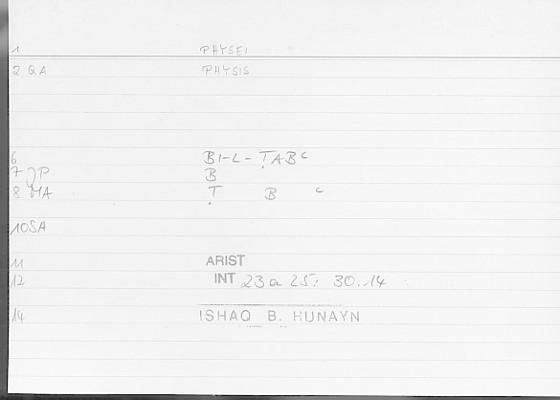 1 PHYSEI
2 QA PHYSIS
6 BI-L-ṬABc
7 JP B
8 MA Ṭ B c
10SA
11 ARIST
12 INT 23a 25: 30.14
14 ISHAQ B. HUNAYN